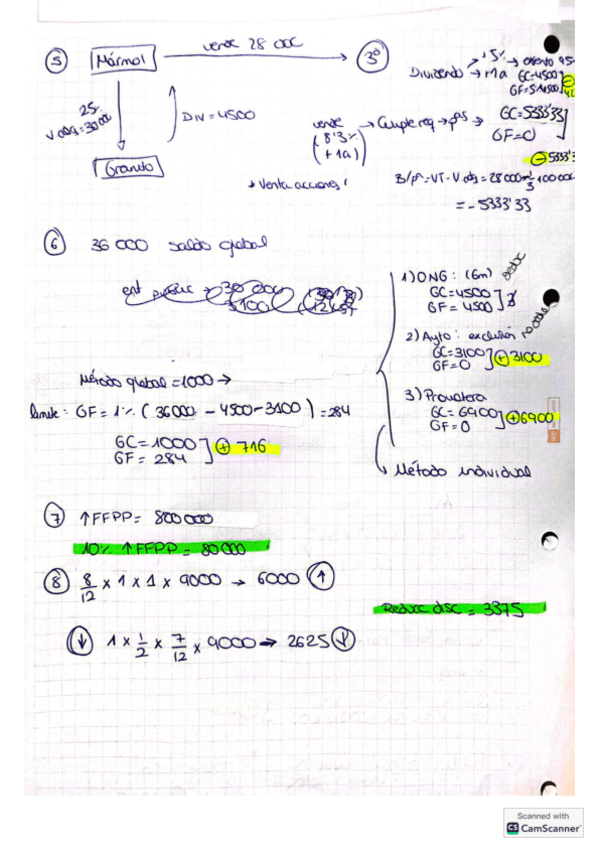 5 Mármol vende 28 000 3º
Dividendo → '5% → exento 95
→ 1 1a GC=4500
GF=
25%
V adq=30000
DIV=4500
Granito
vende (8'3% +1a) → Cumple req → pªs → GC=5333'33
GF=0
⊖5333'3
→ Venta acciones
B/pª=VT-V adq=28000-1/3·100000
=-5333'33
6 36 000 saldo global
1) ONG: (6m) deduc
GC=4500
GF=4500
2) Ayto: exclusión no deduc
GC=3100 ⊕3100
GF=0
3) Proveedora
GC=6900 ⊕6900
GF=0
Método individual
Método global=1000 →
límite: GF=1% (36000-4500-3100)=284
GC=1000 ⊕ 716
GF=284
7 ↑FFPP= 800000
10% ↑FFPP = 80000
8 8/12 x 1 x 1 x 9000 → 6000 ↑
Reducc disc = 3375
↓ 1 x 1/2 x 7/12 x 9000 → 2625 ↓
Scanned with
CS CamScanner